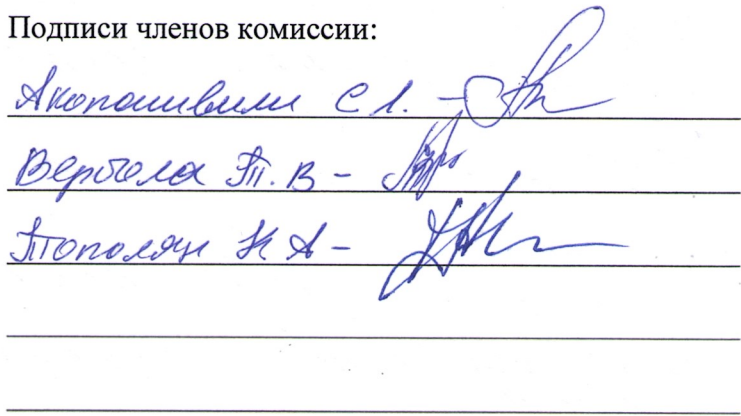 Подписи членов комиссии:
Акопашвили С Л. -
Вербела Т. В -
Тополян Н А -